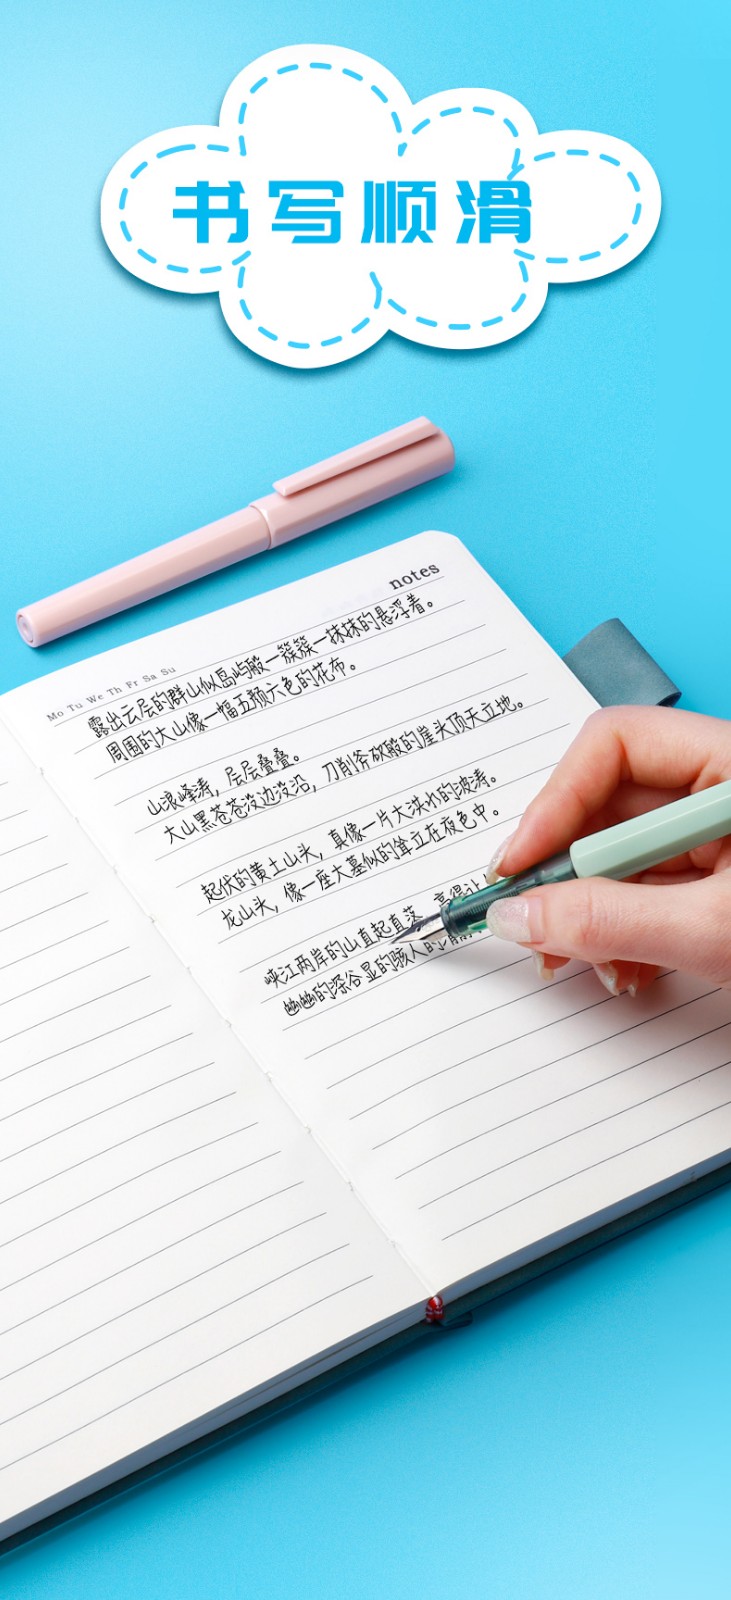 书写顺滑
notes
Mo Tu We Th Fr Sa Su
露出云层的群山似岛屿般一簇簇一抹抹的悬浮着。
周围的大山像一幅五颜六色的花布。
山浪峰涛，层层叠叠。
大山黑苍苍没边没沿，刀削斧砍般的崖头顶天立地。
起伏的黄土山头，真像一片大洪水的波涛。
龙山头，像一座大墓似的耸立在夜色中。
峡江两岸的山直起直落，高得让
幽幽的深谷显的骇人的清